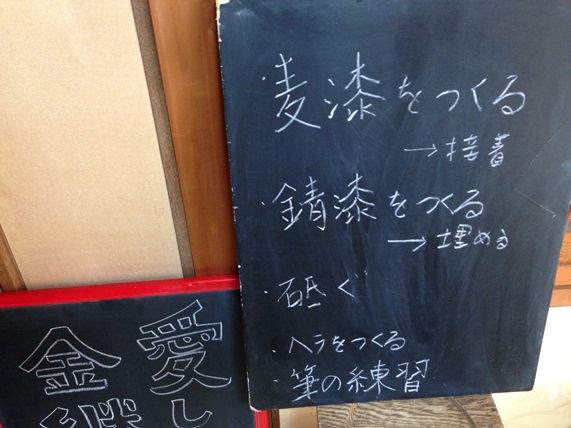 ・麦漆をつくる
→接着
・錆漆をつくる
→埋める
・砥ぐ
・ヘラをつくる
・筆の練習
愛し
金継